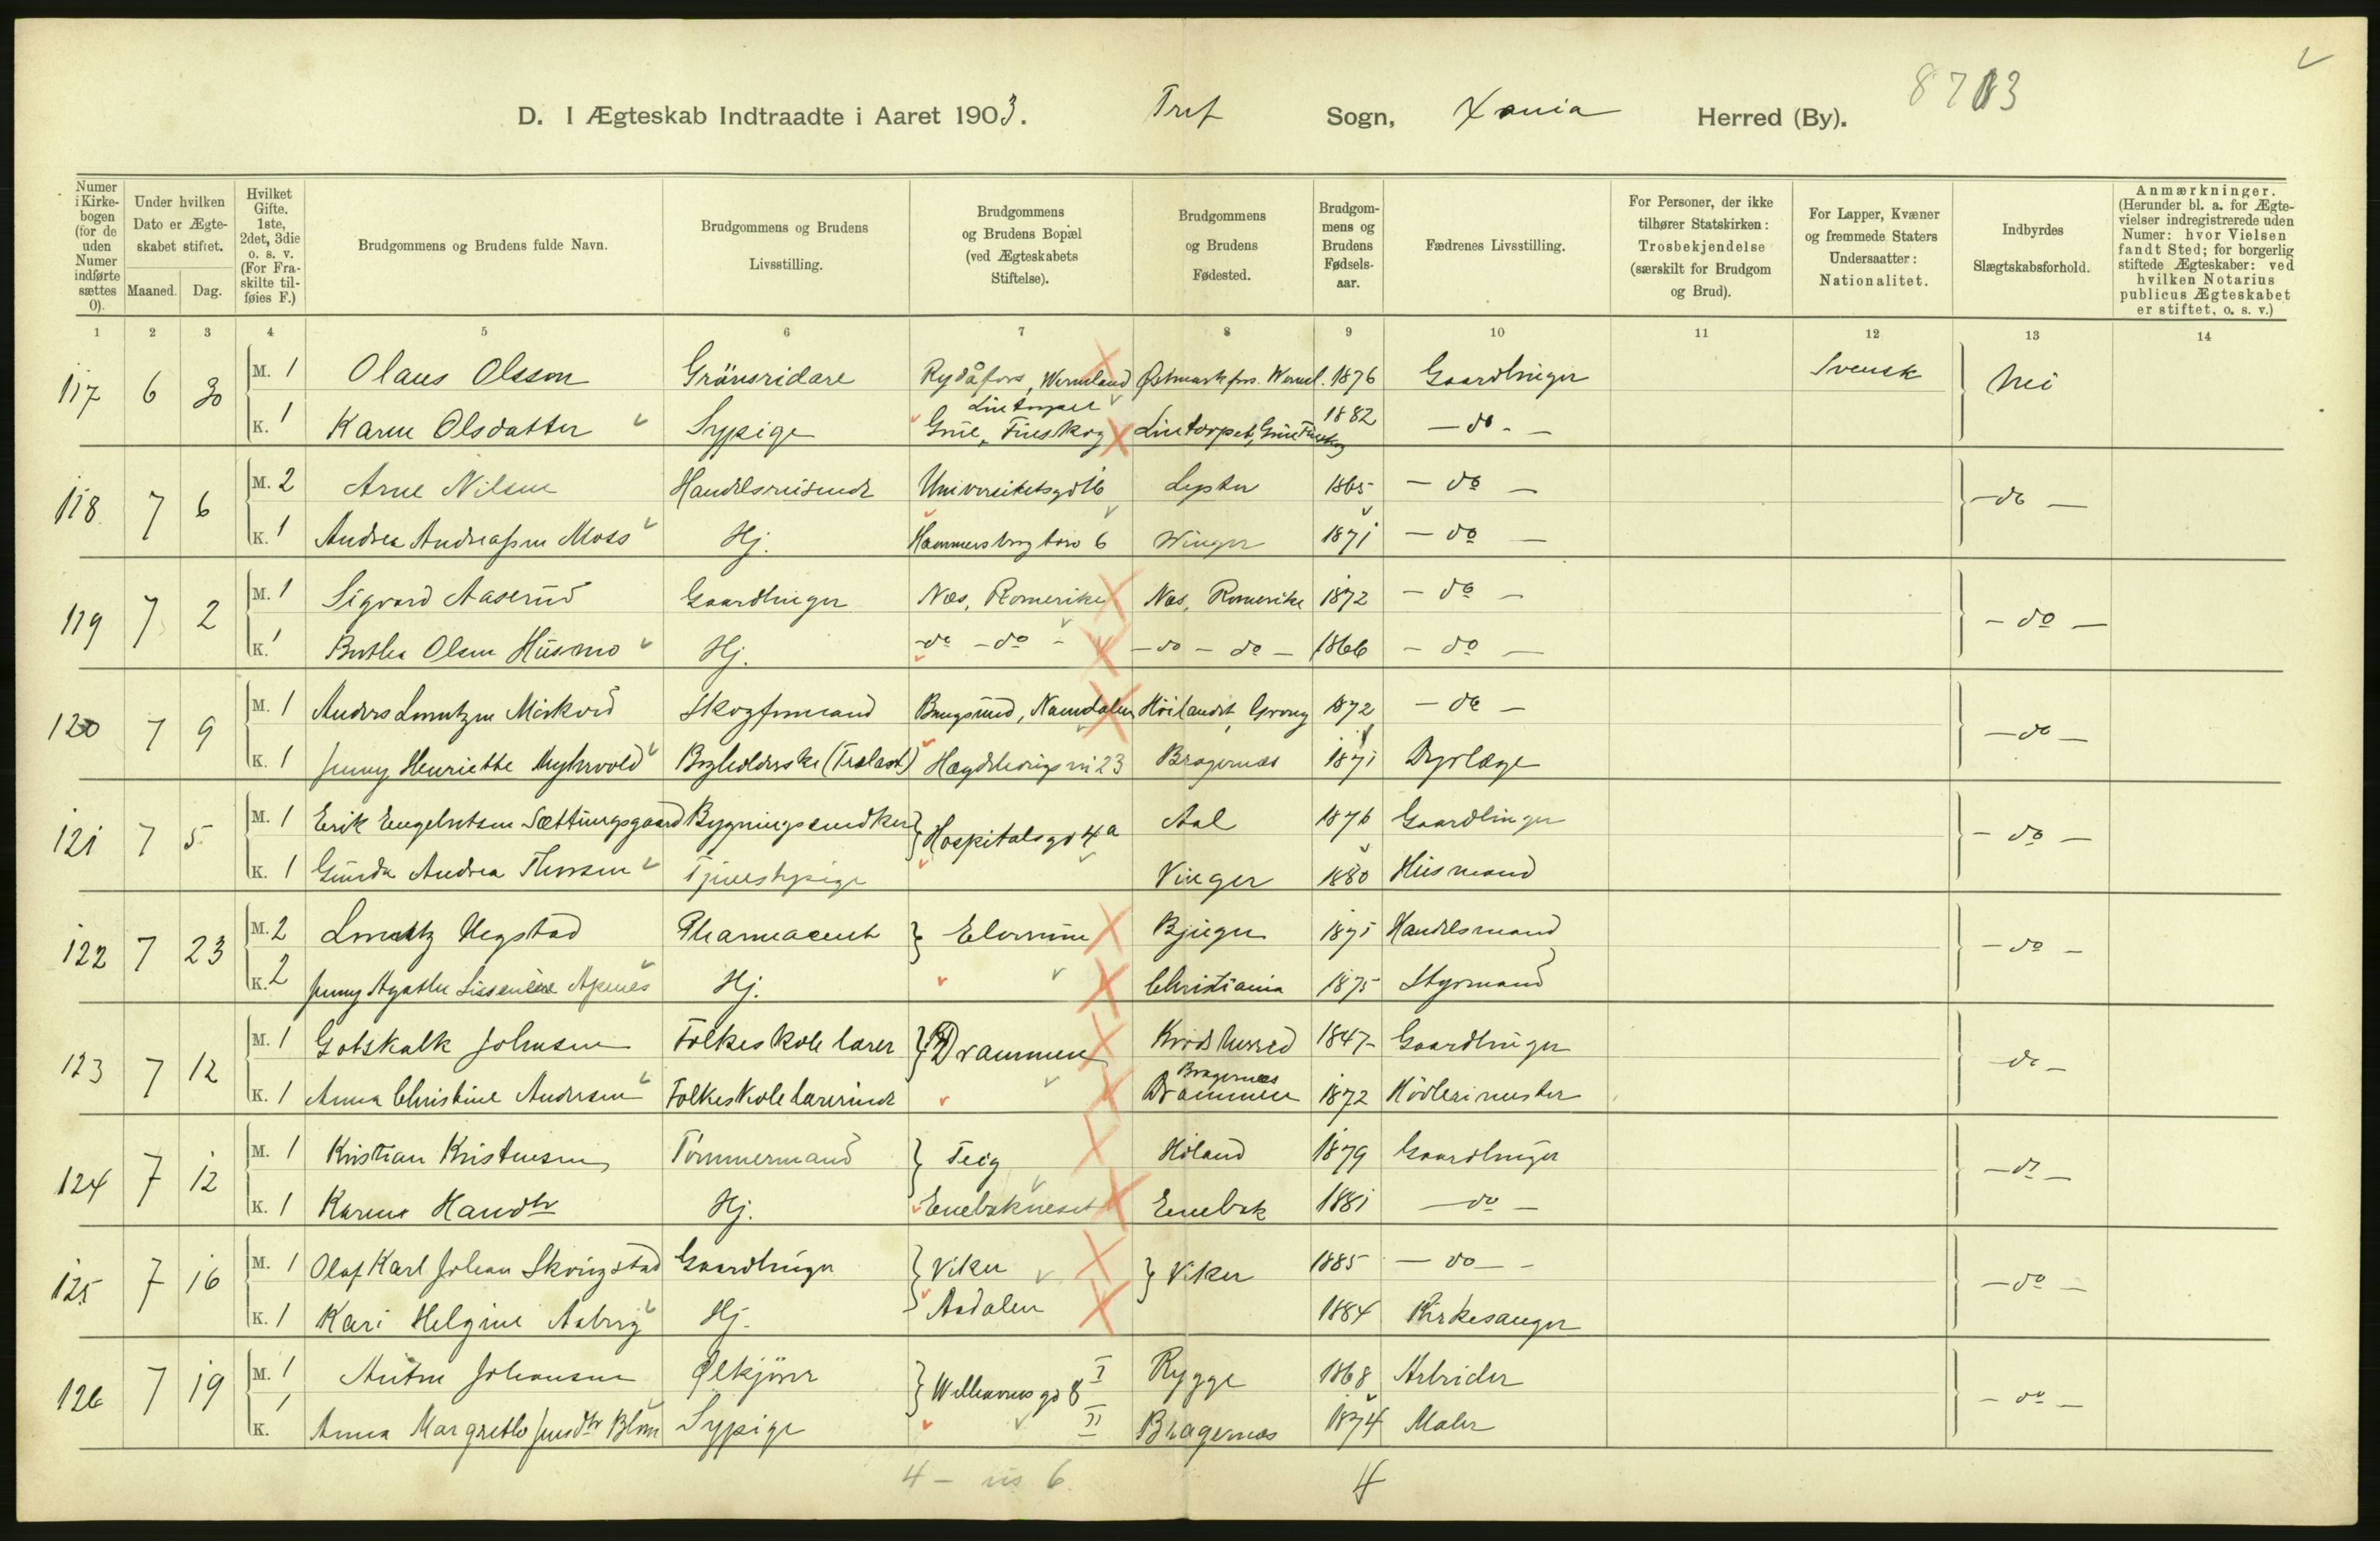 8713
D. I Ægteskab Indtraadte i Aaret 1903. Tref Sogn, Xania Herred (By).
Numer i Kirkebogen (for de uden Numer indførte sættes 0).
Under hvilken Dato er Ægteskabet stiftet.
Maaned. Dag.
Hvilket Gifte. 1ste, 2det, 3die o. s. v. (For Fraskilte tilføies F.)
Brudgommens og Brudens fulde Navn.
Brudgommens og Brudens Livsstilling.
Brudgommens og Brudens Bopæl (ved Ægteskabets Stiftelse).
Brudgommens og Brudens Fødested.
Brudgommens og Brudens Fødselsaar.
Fædrenes Livsstilling.
For Personer, der ikke tilhører Statskirken: Trosbekjendelse (særskilt for Brudgom og Brud).
For Lapper, Kvæner og fremmede Staters Undersaatter: Nationalitet.
Indbyrdes Slægtskabsforhold.
Anmærkninger. (Herunder bl. a. for Ægtevielser indregistrerede uden Numer: hvor Vielsen fandt Sted; for borgerlig stiftede Ægteskaber: ved hvilken Notarius publicus Ægteskabet er stiftet, o. s. v.)
1 2 3 4 5 6 7 8 9 10 11 12 13 14
117 6 30 M. 1 Olaus Olsson Gränsridare Rydåfors, Wermland Østmark fors. Werml. 1876 Gaardbruger Svensk Nei
K. 1 Karen Olsdatter Sypige Lintorpet Grue, Finskog Lintorpet, Grue Finskog 1882 — do —
118 7 6 M. 2 Arne Nilsen Handelsreisende Universitetsgd 16 Lyster 1865 — do — — do —
K. 1 Andrea Andreassen Moss Hj. Hammersborg torv 6 Winger 1871 — do —
119 7 2 M. 1 Sigvard Aaserud Gaardbruger Næs, Romerike Næs, Romerike 1872 — do — — do —
K. 1 Berthe Olsen Husmo Hj. — do — do — — do — do — 1866 — do —
120 7 9 M. 1 Anders Lorntzen Mörkved Skogformand Bangsund, Namdalen Höilandet, Grong 1872 — do — — do —
K. 1 Jenny Henriette Myhrvold Bogholderske (Trælast) Hægdehaugsvn 23 Bragernæs 1871 Dyrlæge
121 7 5 M. 1 Erik Engebretsen Sættungsgaard Bygningssnedker Hospitalsgd 4a Aal 1876 Gaardbruger — do —
K. 1 Gunda Andrea Thorsen Tjenestepige Vinger 1880 Husmand
122 7 23 M. 2 Lorentz Hegstad Pharmaceut Elverum Bjugn 1871 Handelsmand — do —
K. 2 Jenny Agathe Apenes Hj. Christiania 1875 Styrmand
123 7 12 M. 1 Gotskalk Johnsen Folkeskole lærer Drammen Krødsherred 1847 Gaardbruger do —
K. 1 Anna Christine Andersen Folkeskolelærerinde Bragernæs Drammen 1872
124 7 12 M. 1 Kristian Kristensen Tømmermand Teig Höland 1879 Gaardbruger — do —
K. 1 Karen Hansdtr Hj. Enebakneset Enebak 1881 — do —
125 7 16 M. 1 Olaf Karl Johan Skougstad Gaardbruger Viker Viker 1885 — do — — do —
K. 1 Kari Helgine Aaberg Hj. Aadalen 1884 Kirkesanger
126 7 19 M. 1 Anton Johansen Ølkjører Wilhelmsgd 8 I Rygge 1868 Arbeider — do —
K. 1 Anna Margrethe Jensdtr Blom Sypige II Bragernæs 1874 Maler
4 — 6. 4